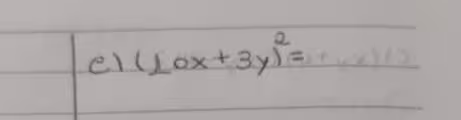 e) (10x+3y)²=